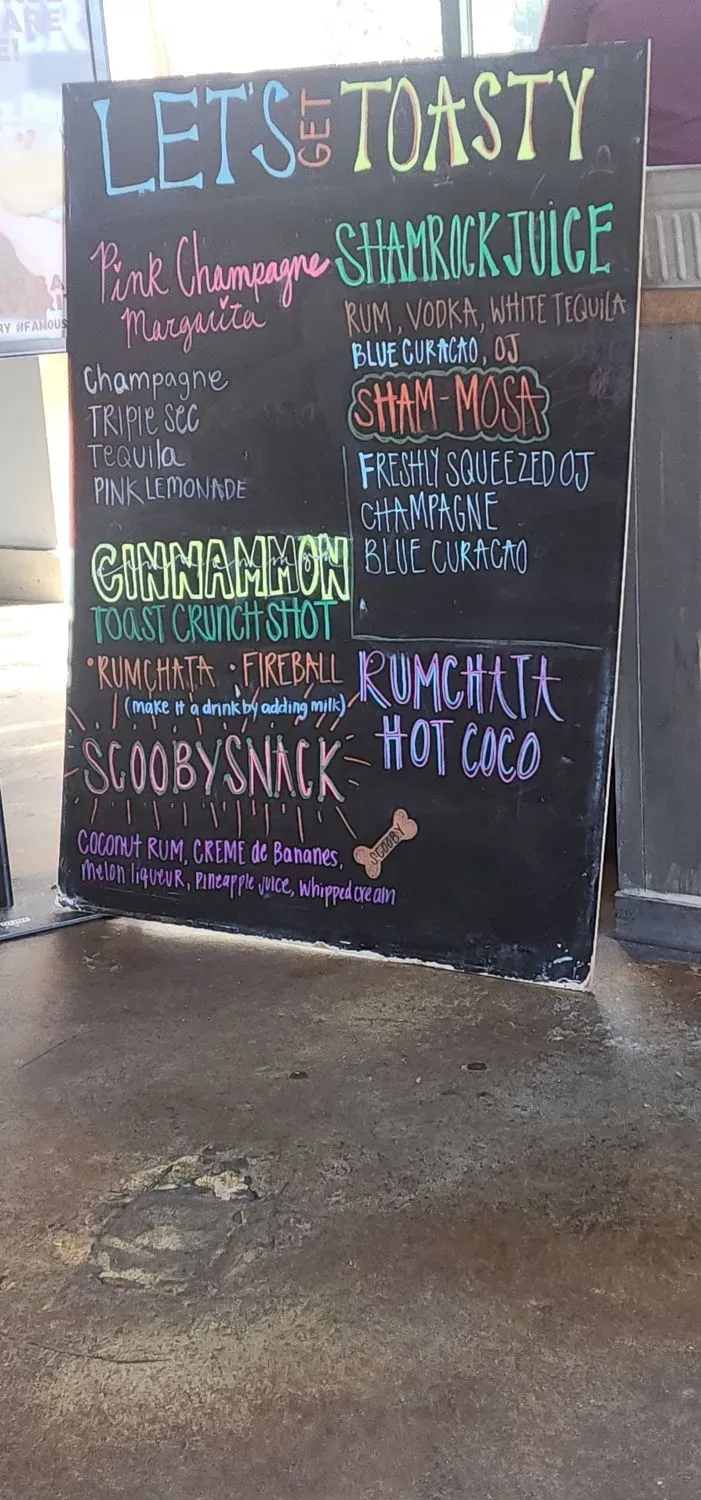 LET'S GET TOASTY
Pink Champagne
Margarita
Champagne
TRIPLE SEC
Tequila
PINK LEMONADE
CINNAMMON
TOAST CRUNCH SHOT
• RUMCHATA • FIREBALL
(make it a drink by adding milk)
SCOOBY SNACK
COCONUT RUM, CREME de Bananes,
melon liqueur, Pineapple juice, whipped cream
SCOOBY
SHAMROCK JUICE
RUM, VODKA, WHITE TEQUILA
BLUE CURACAO, OJ
SHAM-MOSA
FRESHLY SQUEEZED OJ
CHAMPAGNE
BLUE CURACAO
RUMCHATA
HOT COCO
ARE
E!
#FAMOUS